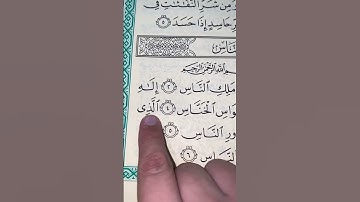 مِن شَرِّ النَّفَّٰثَٰتِ فِى
حَاسِدٍ إِذَا حَسَدَ ٥
النَّاسِ
اللَّهِ الرَّحْمَٰنِ الرَّحِيمِ
مَلِكِ النَّاسِ ٢ إِلَٰهِ
الْخَنَّاسِ ٤ الَّذِى
النَّاسِ ٥
٦